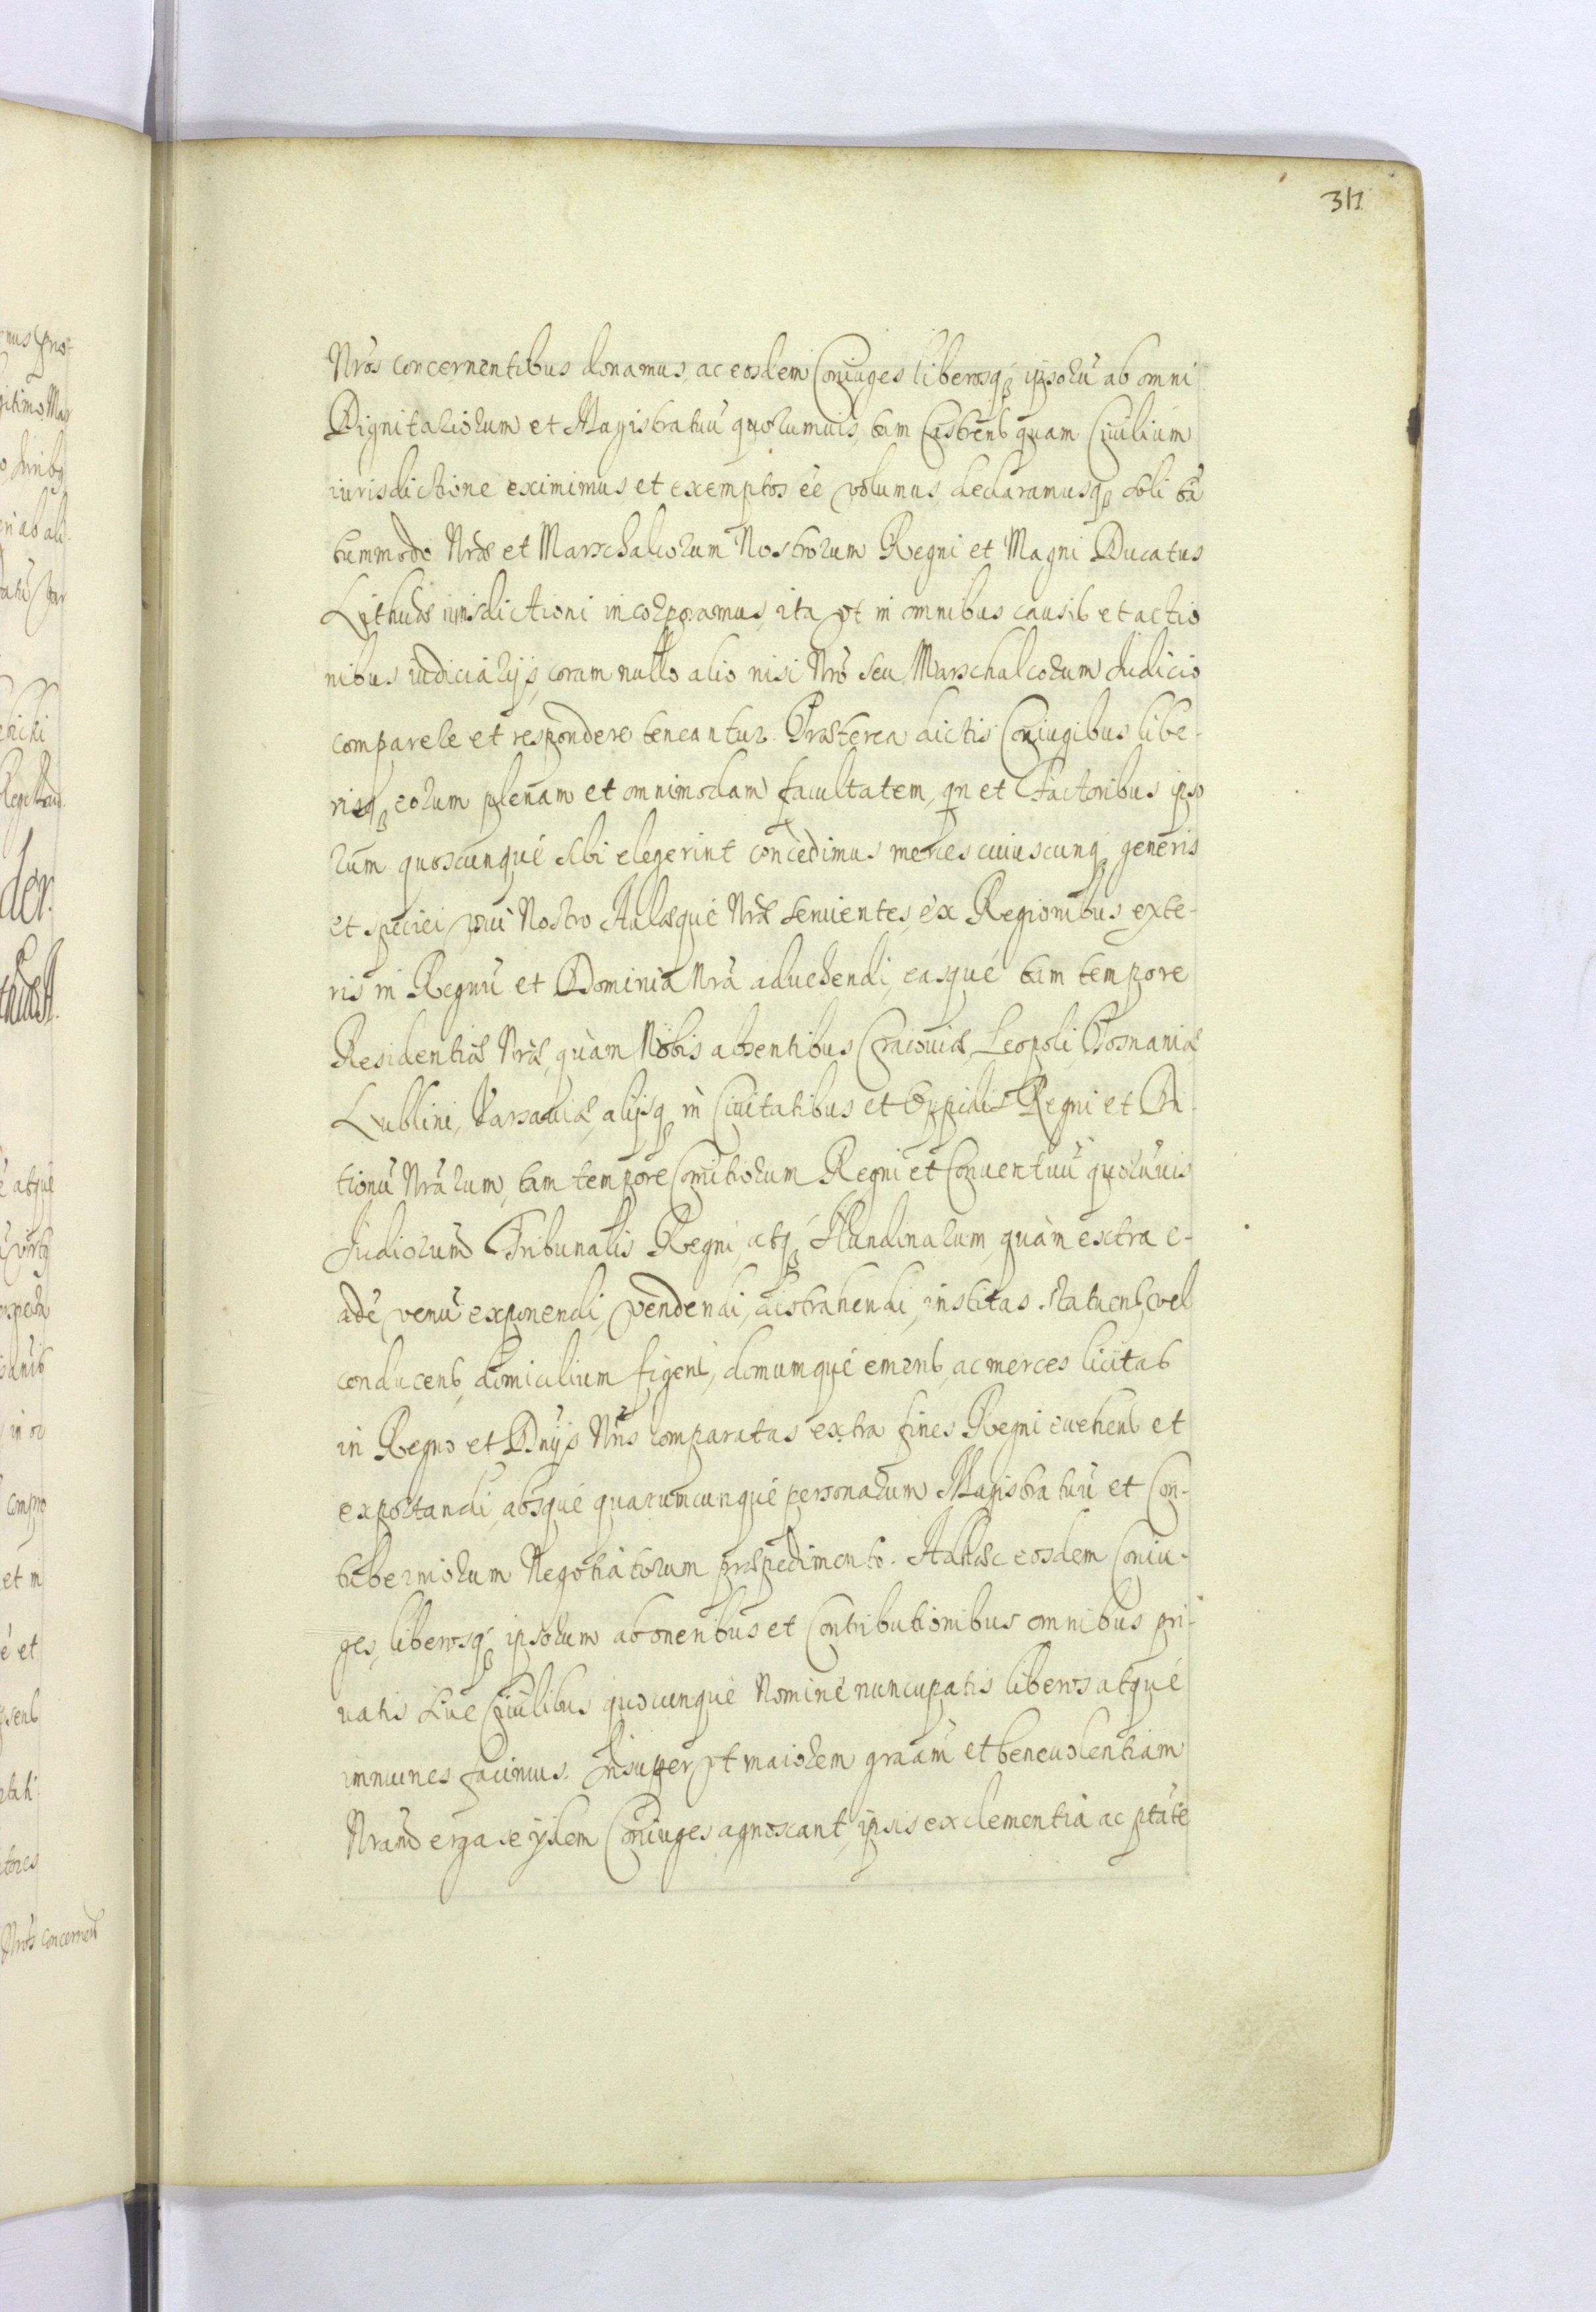 311
Nros concernentibus donamus, ac eosdem Coniuges liberosq₃ ipsorū ab omni
Dignitariorum et Magistratuū quorumuis, tam Castrens quam Ciuilium
iurisdictione eximimus et exemptos ēe volumus, declaramusq₃ soli tā
tummodo Nræ et Marschalcorum Nostrorum Regni et Magni Ducatus
Lithuæ iurisdictioni incorporamus, ita vt in omnibus causis et actio
nibus iudiciarijs, coram nullo alio nisi Nrō seu Marschalcorum Judicio
comparere et respondere teneantur. Præterea dictis Coniugibus libe-
risq₃ eorum plenam et omnimodam facultatem, qn et Factoribus ipso
rum quoscunqué sibi elegerint concedimus merces cuiuscunq₃ generis
et speciei vsui Nostro Aulæqué Nræ seruientes, ex Regionibus exte-
ris in Regnū et Dominia Nrā aduehendi, easqué tam tempore
Residentiæ Nræ, quàm Nobis absentibus Cracouiæ, Leopoli, Posnaniæ
Lublini, Varsauiæ, alijsq₃ in Ciuitatibus et Oppidis Regni et Di-
tionū Nrārum, tam tempore Comitiorum Regni et Conuentuū quorūuis
Judiciorum Tribunalis Regni, atq₃ Nundinarum, quàm extra e-
adē venū exponendi, vendendi, distrahendi, institas statuens, vel
conducens, domicilium figens, domumqué emens, ac merces licitas
in Regno et Dnijs Nris comparatas extra fines Regni euehens et
exportandi, absqué quarumcunqué personarum Magistratuū et Con-
tuberniorum Negotiatorum præpedimento. Adhæc eosdem Coniu-
ges, liberosq₃ ipsorum ab oneribus et Contributionibus omnibus pri-
uatis siue Ciuilibus quocunqué Nomine nuncupatis liberos atqué
immunes facimus. Insuper vt maiorem graām et beneuolentiam
Nram erga se ijdem Coniuges agnoscant, ipsis ex clementia ac ptāte